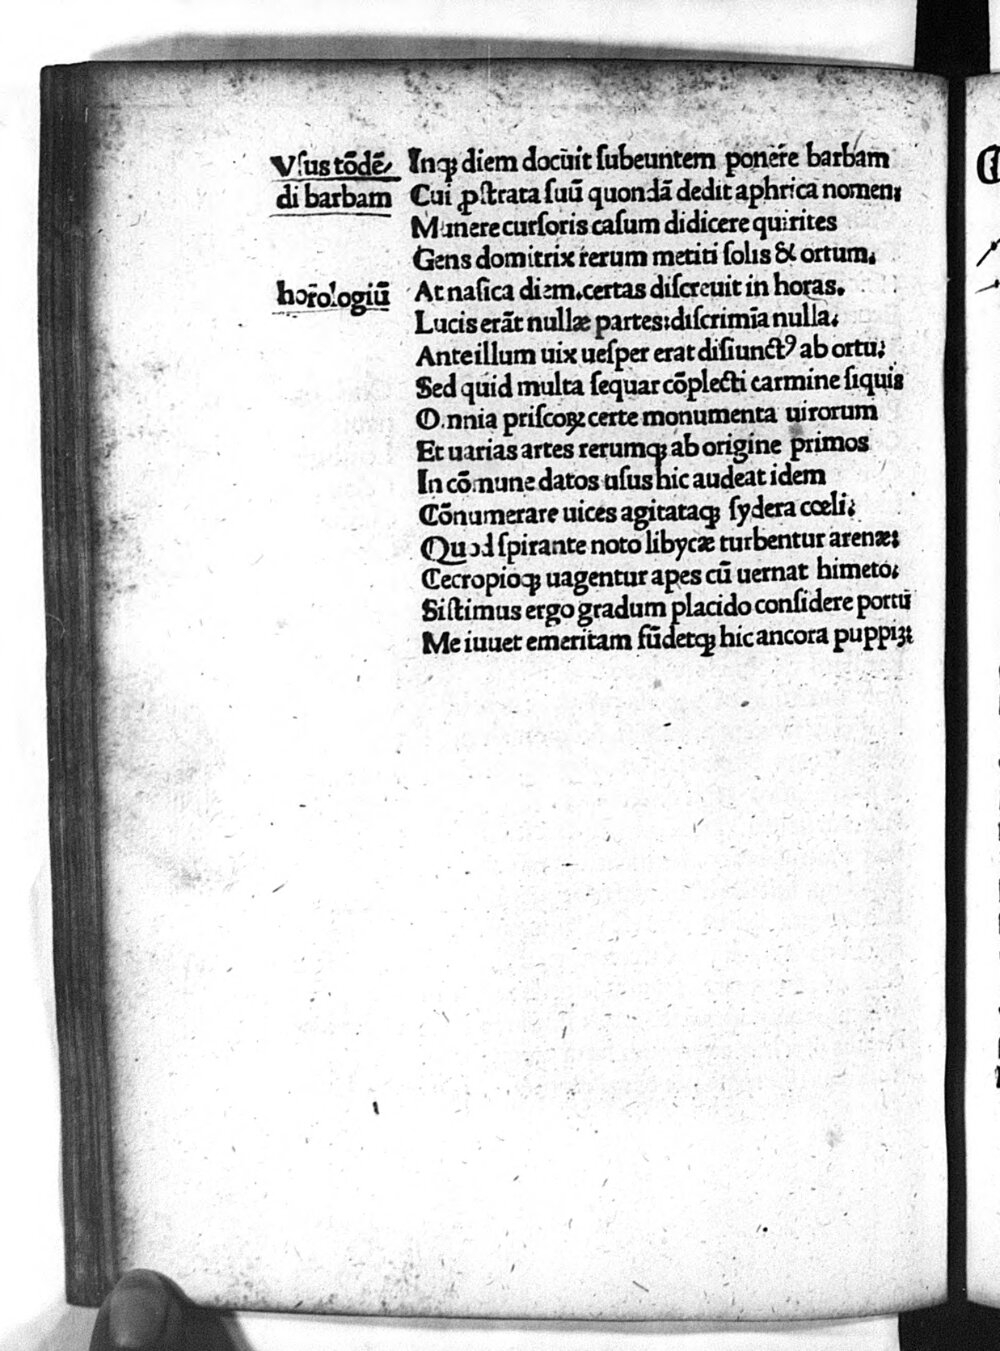 Vſus tōdē/
di barbam
Inqꝫ diem docuit ſubeuntem ponere barbam
Cui ꝓſtrata ſuū quondā dedit aphrica nomen;
Munere curſoris caſum didicere quirites
Gens domitrix rerum metiri ſolis & ortum.
horologiū
At naſica diem.certas diſcreuit in horas.
Lucis erāt nullæ partes:diſcrimīa nulla.
Ante illum uix ueſper erat diſiunctꝰ ab ortu;
Sed quid multa ſequar cōplecti carmine ſiquis
Omnia priſcoꝝ certe monumenta uirorum
Et uarias artes rerumqꝫ ab origine primos
In cōmune datos uſus hic audeat idem
Cōnumerare uices agitataqꝫ ſydera cœli;
Quod ſpirante noto libycæ turbentur arenæ;
Cecropioqꝫ uagentur apes cū uernat himeto;
Siſtimus ergo gradum placido conſidere portu
Me iuuet emeritam fūdetqꝫ hic ancora puppiꝫ